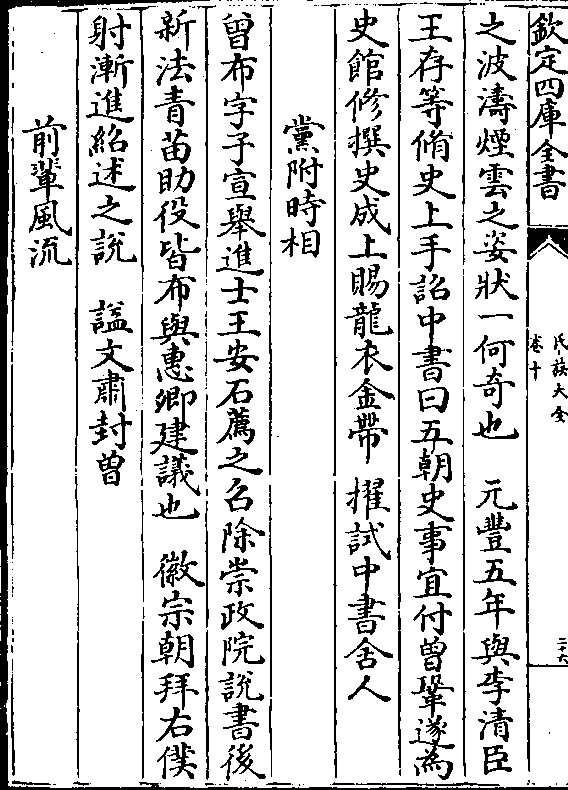 欽定四庫全書
氏族大全
卷十
二十六
之波濤煙雲之姿狀一何奇也　元豐五年與李清臣
王存等脩史上手詔中書曰五朝史事宜付曾鞏遂為
史館修撰史成上賜龍衣金帶　擢試中書舍人
黨附時相
曾布字子宣舉進士王安石薦之召除崇政院說書後
新法青苗助役皆布與惠卿建議也　徽宗朝拜右僕
射漸進紹述之說　諡文肅封曾
前輩風流